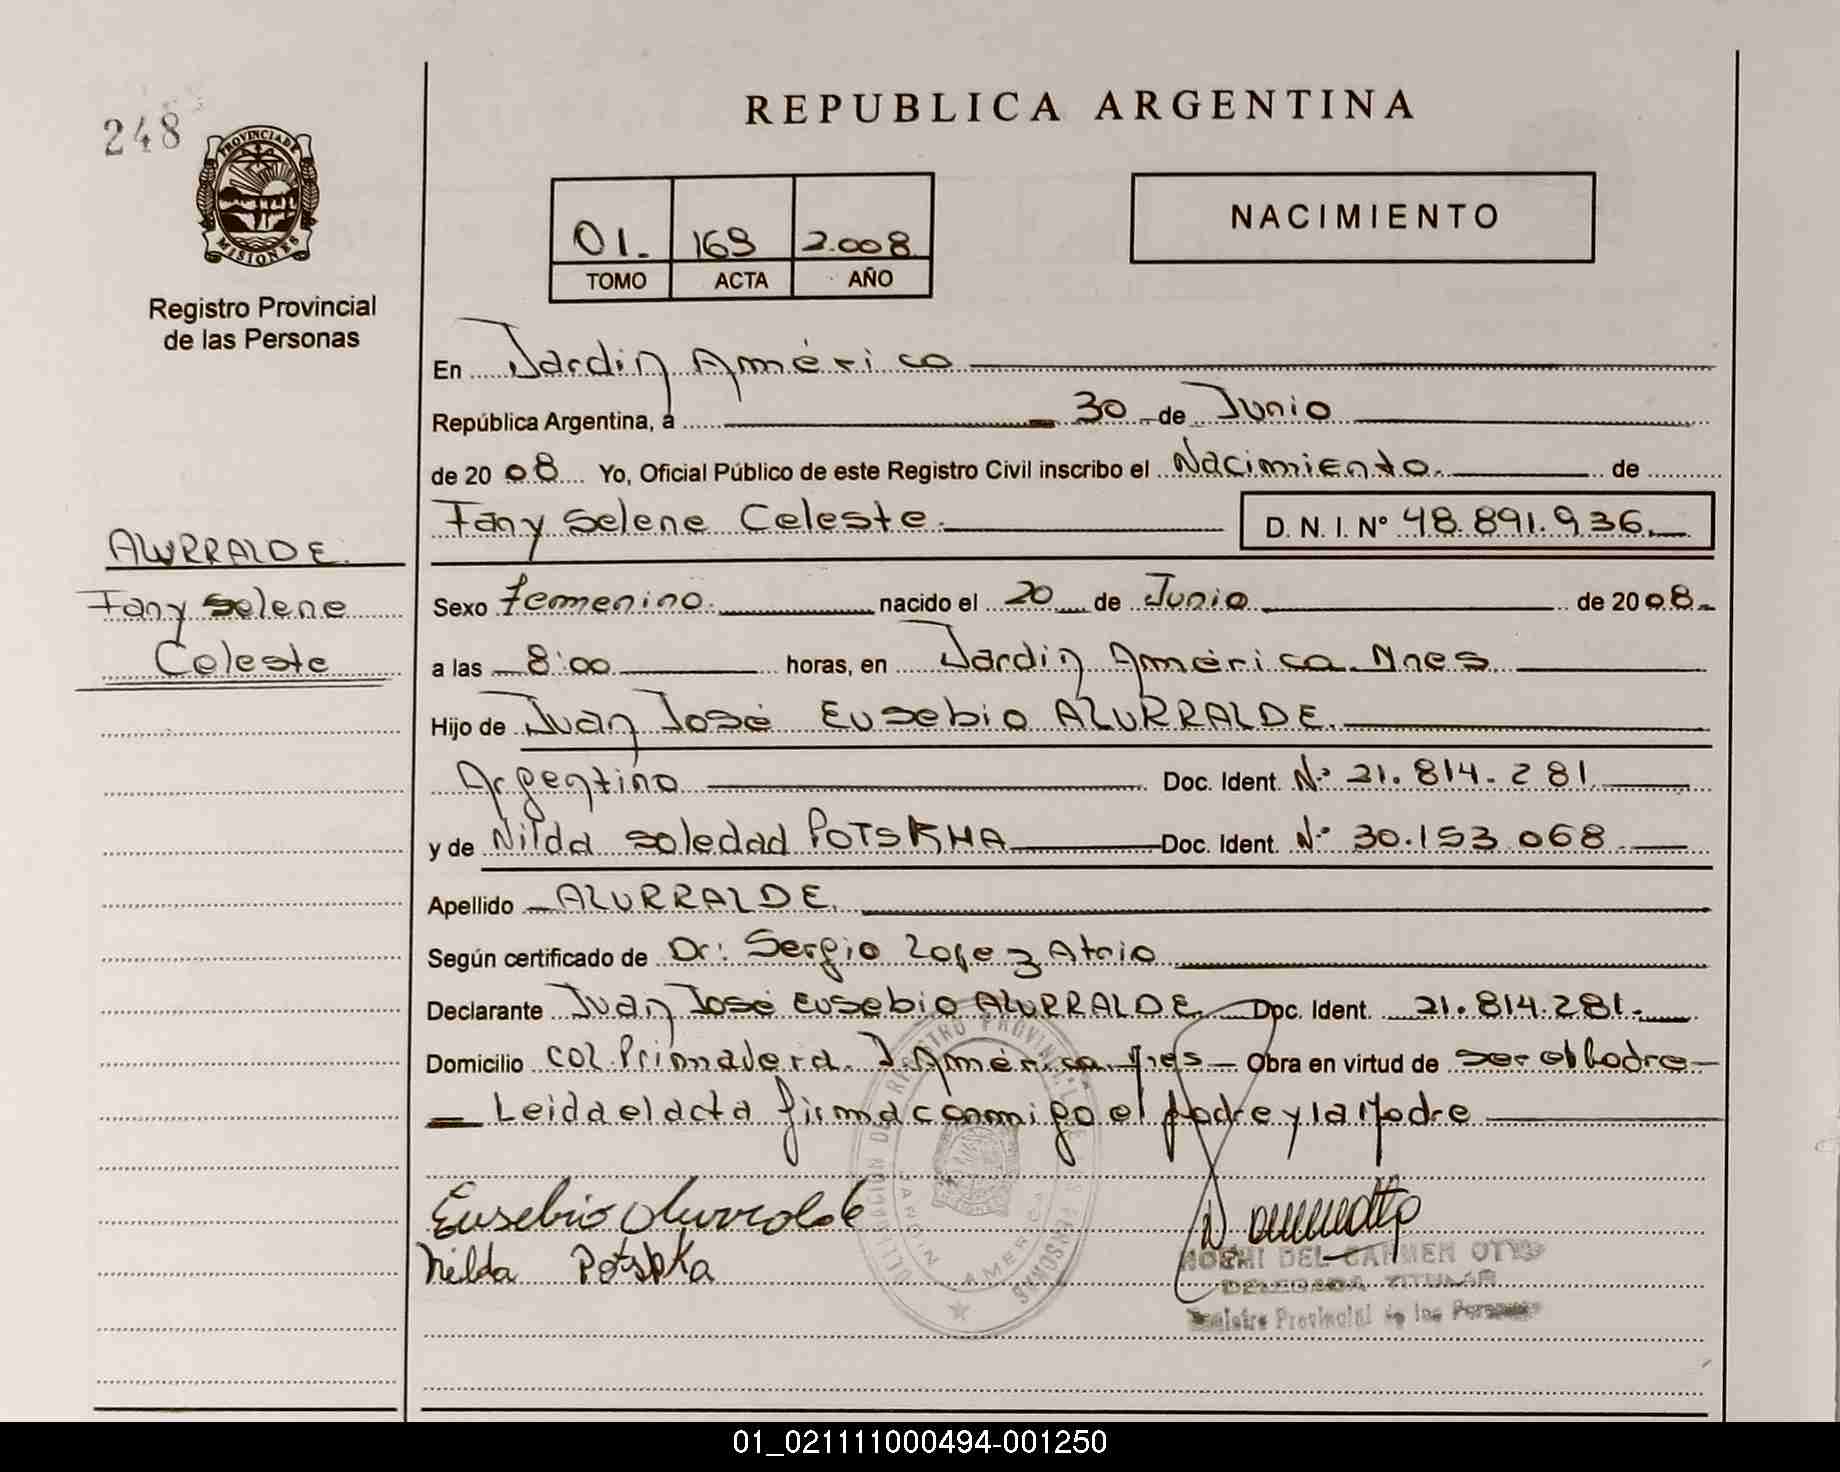 248
PROVINCIA DE
MISIONES
Registro Provincial
de las Personas
REPUBLICA ARGENTINA
01. 169 2.008.
TOMO ACTA AÑO
NACIMIENTO
En Jardin América
República Argentina, a 30 de Junio
de 20 08 Yo, Oficial Público de este Registro Civil inscribo el Nacimiento. de
Fany Selene Celeste. D. N. I. Nº 48.891.936.
ALURRALDE.
Fany Selene
Celeste
Sexo femenino. nacido el 20 de Junio de 20 08.
a las 8:00 horas, en Jardin América. Mnes.
Hijo de Juan José Eusebio ALURRALDE.
Argentino Doc. Ident. Nº 21.814.281.
y de Nilda Soledad POTSKHA Doc. Ident. Nº 30.153.068
Apellido ALURRALDE.
Según certificado de Dr: Sergio Lopez Atrio
Declarante Juan José Eusebio ALURRALDE. Doc. Ident. 21.814.281.
Domicilio Col. Primavera. J. América. Mnes Obra en virtud de ser el Padre
Leida el acta firma conmigo el Padre y la Madre
Eusebio Alurralde
Nilda
DEL CARMEN
DELEGADA TITULAR
Registro Provincial de las Personas
DELEGACION DEL REGISTRO PROVINCIAL DE LAS PERSONAS
JARDIN AMERICA
01_021111000494-001250